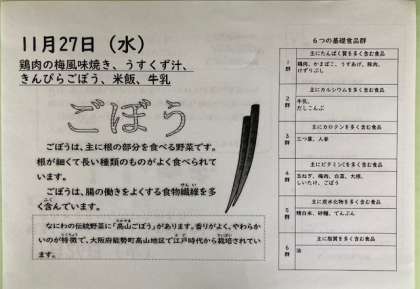 11月27日（水）
鶏肉の梅風味焼き、うすくず汁、
きんぴらごぼう、米飯、牛乳
ごぼう
ごぼうは、主に根の部分を食べる野菜です。
根が細くて長い種類のものがよく食べられて
います。
ごぼうは、腸の働きをよくする食物繊維を多
く含んでいます。
なにわの伝統野菜に「高山ごぼう」があります。香りがよく、やわらか
いのが特徴で、大阪府能勢町高山地区で江戸時代から栽培されていま
す。
６つの基礎食品群
1群
主にたんぱく質を多く含む食品
鶏肉、かまぼこ、うすあげ、豚肉、
けずりぶし
2群
主にカルシウムを多く含む食品
牛乳、
だしこんぶ
3群
主にカロテンを多く含む食品
三つ葉、人参
4群
主にビタミンCを多く含む食品
玉ねぎ、梅肉、白菜、大根、
しいたけ、ごぼう
5群
主に炭水化物を多く含む食品
精白米、砂糖、でんぷん
6群
主に脂質を多く含む食品
油